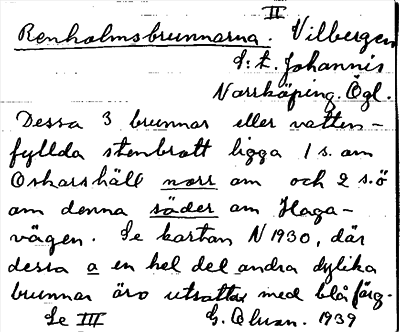 II
Renholmsbrunnarna. Vilbergen
S:t. Johannis
Norrköping. Ögl.
Dessa 3 brunnar eller vatten-
fyllda stenbrott ligga 1 s. om
Oskarshäll norr om och 2 s.ö
om denna söder om Haga-
vägen. Se kartan N 1930, där
dessa o en hel del andra dylika
brunnar äro utsatta med blå färg.
Se III G. Olvon. 1939